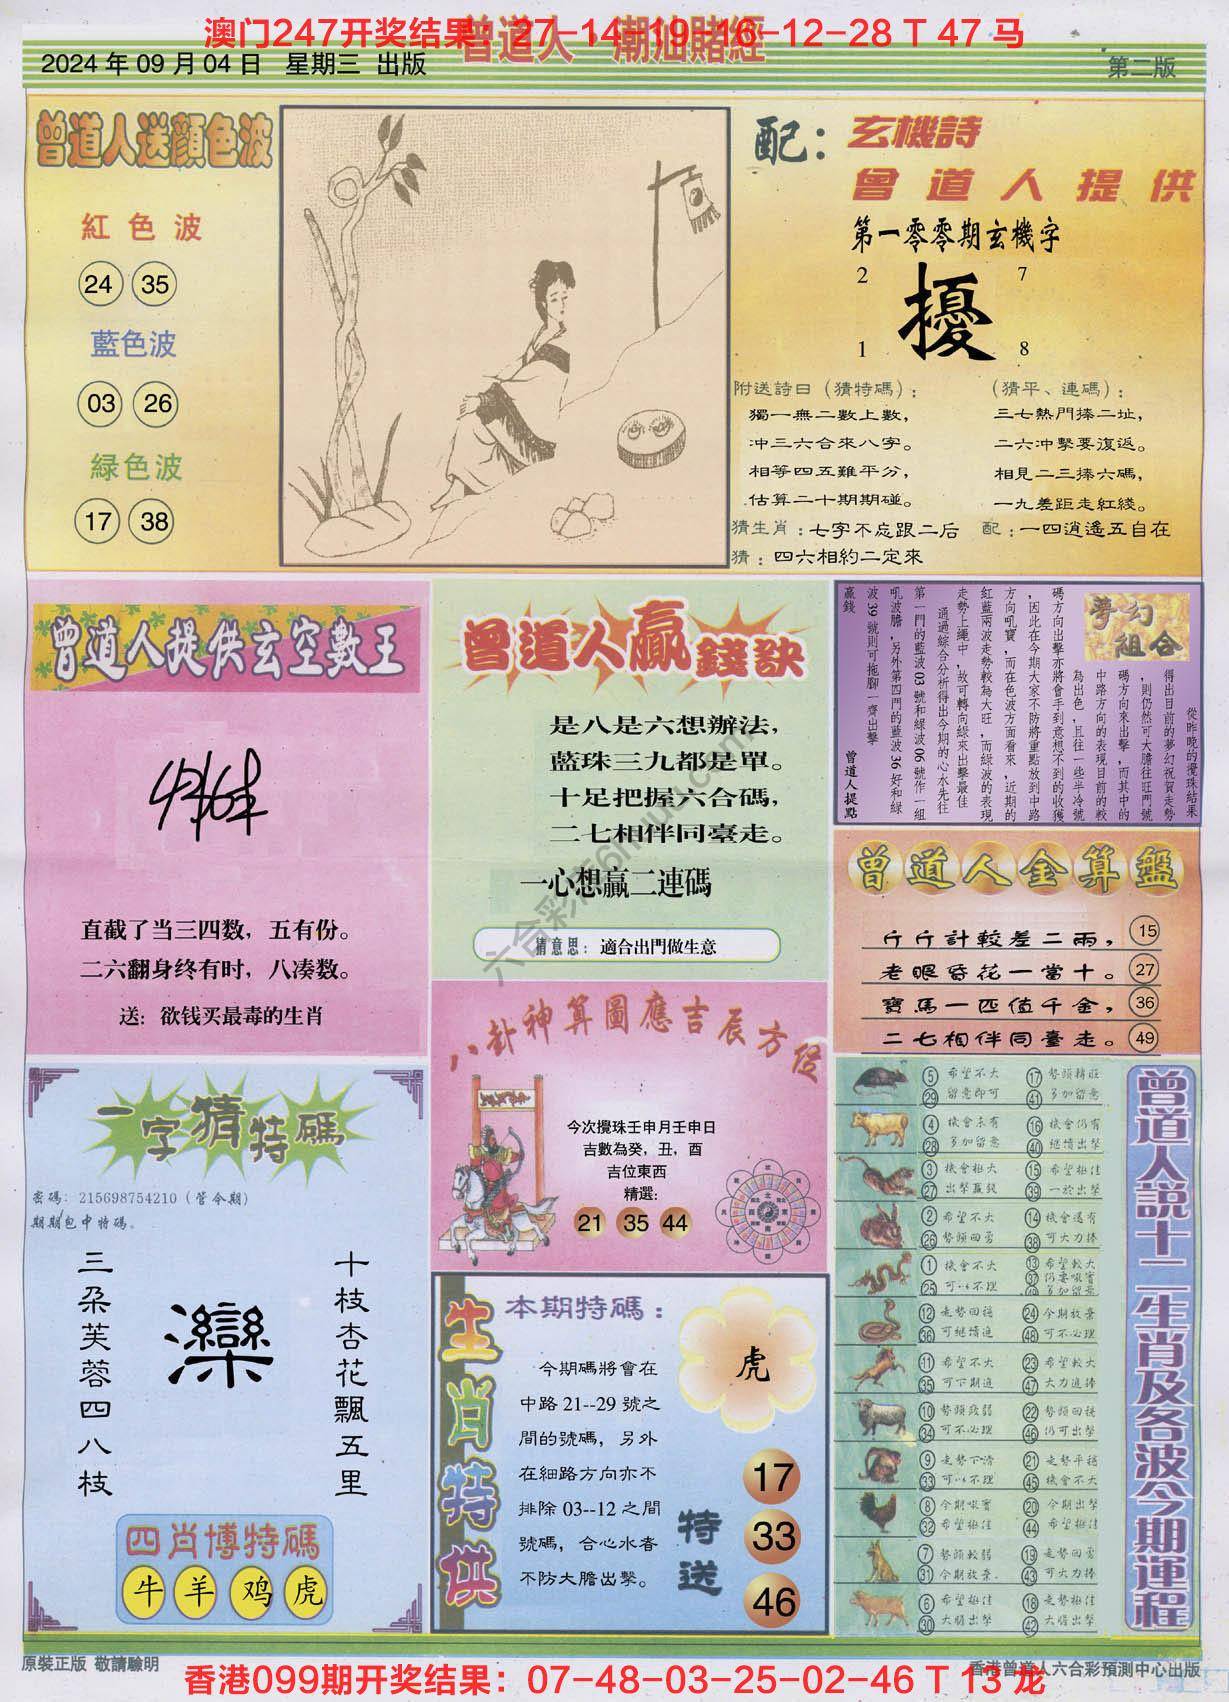 澳门247开奖结果：27-14-19-16-12-28 T 47 马
曾道人 潮汕賭經
2024 年 09 月 04 日 星期三 出版
第二版
曾道人送顔色波
紅色波
24 35
藍色波
03 26
緑色波
17 38
配：
玄機詩
曾道人提供
第一零零期玄機字
2 7
擾
1 8
附送詩曰（猜特碼）：
獨一無二數上數，
冲三六合來八字。
相等四五難平分，
估算二十期期碰。
（猜平、連碼）：
三七熱門捧二址，
二六冲擊要復返。
相見二三捧六碼，
一九差距走紅綫。
猜生肖：七字不忘跟二后
配：一四逍遙五自在
猜：四六相約二定來
曾道人提供玄空數王
直截了当三四数，五有份。
二六翻身终有时，八凑数。
送：欲钱买最毒的生肖
曾道人贏錢訣
是八是六想辦法，
藍珠三九都是單。
十足把握六合碼，
二七相伴同臺走。
一心想贏二連碼
猜意思：適合出門做生意
夢幻組合
從昨晚的攪珠結果
得出目前的夢幻祝賀走勢
，則仍然可大膽往旺門號
碼方向來出擊，而其中的
中路方向的表現目前的較
為出色，且往一些半冷號
碼方向出擊亦將會手到意想不到的收獲
，因此在今期大家不防將重點放到中路
方向吼寶，而在色波方面看來，近期的
紅藍兩波走勢較為大旺，而綠波的表現
走勢上繩中，故可轉向綠來出擊最佳
通過綜合分析得出今期的心水先往
第一門的藍波03號和綠波06號作一組
吼波膽，另外第四門的藍波36好和綠
波39號則可拖腳一齊出擊
贏錢
曾道人提點
曾道人金算盤
斤斤計較差二兩， 15
老眼昏花一當十。 27
寶馬一匹值千金， 36
二七相伴同臺走。 49
八卦神算圖應吉辰方位
今次攪珠壬申月壬申日
吉數為癸，丑，酉
吉位東西
精選：
21 35 44
一字猜特碼
密碼：215698754210（管今期）
期期包中特碼。
十枝杏花飄五里
灤
三朵芙蓉四八枝
四肖博特碼
牛 羊 鸡 虎
生肖特供
本期特碼：
虎
今期碼將會在
中路 21--29 號之
間的號碼，另外
在細路方向亦不
排除 03--12 之間
號碼，合心水者
不防大膽出擊。
特送
17
33
46
曾道人説十二生肖及各波今期運程
5 希望不大 17 勢頭精旺
29 留意即可 41 多加留意
4 機會未有 16 機會仍有
28 多加留意 40 繼續出擊
3 機會極大 15 希望極佳
27 出擊贏錢 39 一於出擊
2 希望不大 14 機會還有
26 勢頭回勇 38 可大力捧
1 機會不大 13 希望較大
25 可以不理 37
12 走勢回穩 24 今期放棄
36 可繼續追 48 可不必理
11 希望不大 23 希望較大
35 可下期追 47 大力追捧
10 勢頭致弱 22 勢頭回穩
34 可不必理 46 仍可出擊
9 走勢下滑 21 走勢平穩
33 可以不理 45 機會不大
8 今期吼實 20 今期出擊
32 希望極佳 44 希望極佳
7 勢頭較弱 19 走勢回勇
31 今期放棄. 43 可大力捧
6 希望極佳 18 走勢極佳
30 大膽出擊 42 大膽出擊
原裝正版 敬請驗明
香港曾道人六合彩預測中心出版
香港099期开奖结果：07-48-03-25-02-46 T 13 龙